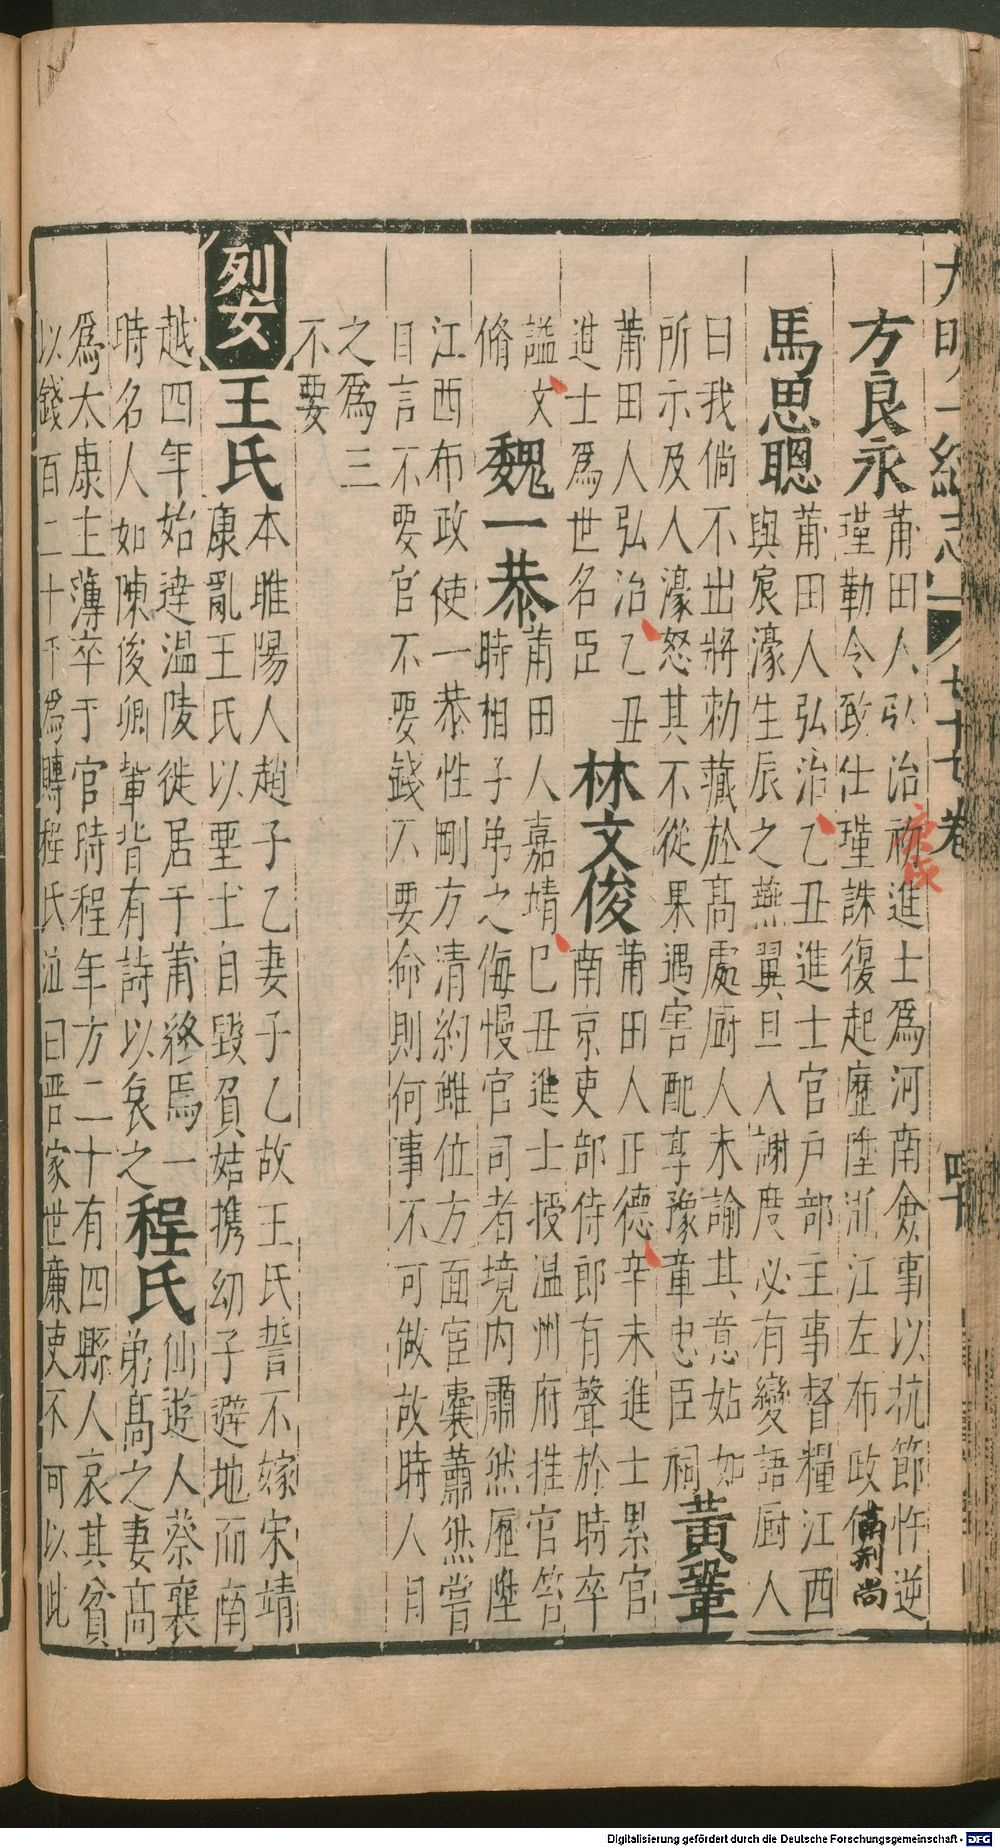 大明一統志 七十七卷 四十
方良永 莆田人弘治初進士爲河南僉事以抗節忤逆
瑾勒令致仕瑾誅復起歷陞浙江左布政使 南刑尚
庚戌
馬思聰 莆田人弘治乙丑進士官戶部主事督糧江西
與宸濠生辰之燕翼旦入謝度必有變語厨人
曰我倘不出將勑藏於高處厨人未諭其意姑如
所示及人濠怒其不從果遇害配享豫章忠臣祠 黃鞏
莆田人弘治乙丑
進士爲世名臣 林文俊 莆田人正德辛未進士累官
南京吏部侍郎有聲於時卒
謚文
脩 魏一恭 莆田人嘉靖己丑進士授温州府推官笞
時相子弟之侮慢官司者境内肅然歷陞
江西布政使一恭性剛方清約雖位方面宦囊蕭然嘗
目言不要官不要錢不要命則何事不可做故時人目
之爲三
不要
列女 王氏 本睢陽人趙子乙妻子乙故王氏誓不嫁宋靖
康亂王氏以堊土自毀負姑携幼子避地而南
越四年始達温陵徙居于莆終焉一
時名人如陳俊卿輩皆有詩以哀之 程氏 仙遊人蔡襄
弟高之妻高
爲太康主薄卒于官時程年方二十有四縣人哀其貧
以錢百二十千爲賻程氏泣曰吾家世廉吏不可以此
Digitalisierung gefördert durch die Deutsche Forschungsgemeinschaft - DFG